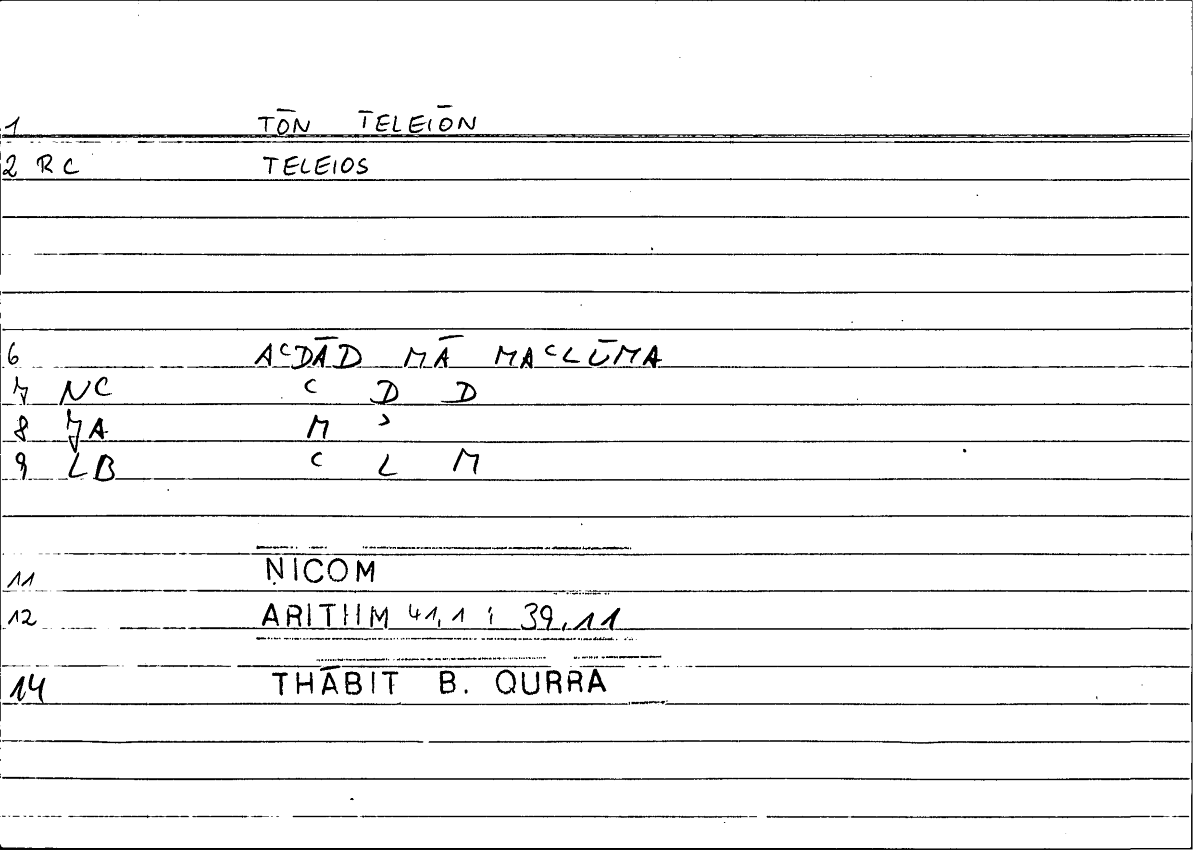 1 TŌN TELEIŌN
2 RC TELEIOS
6 AᶜDĀD MĀ MAᶜLŪMA
7 NC ᶜ D D
8 JA M ʾ
9 LB ᶜ L M
11 NICOM
12 ARITHM 41,1 ; 39,11
14 THĀBIT B. QURRA